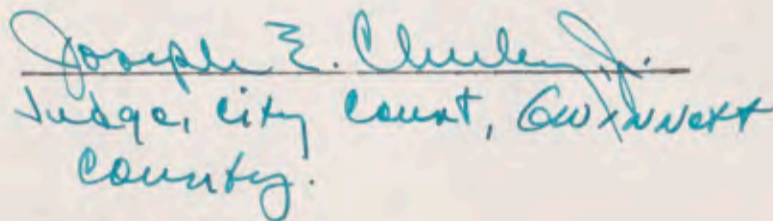 Joseph E. Cheeley, Jr.
Judge, City Court, Gwinnett
County.